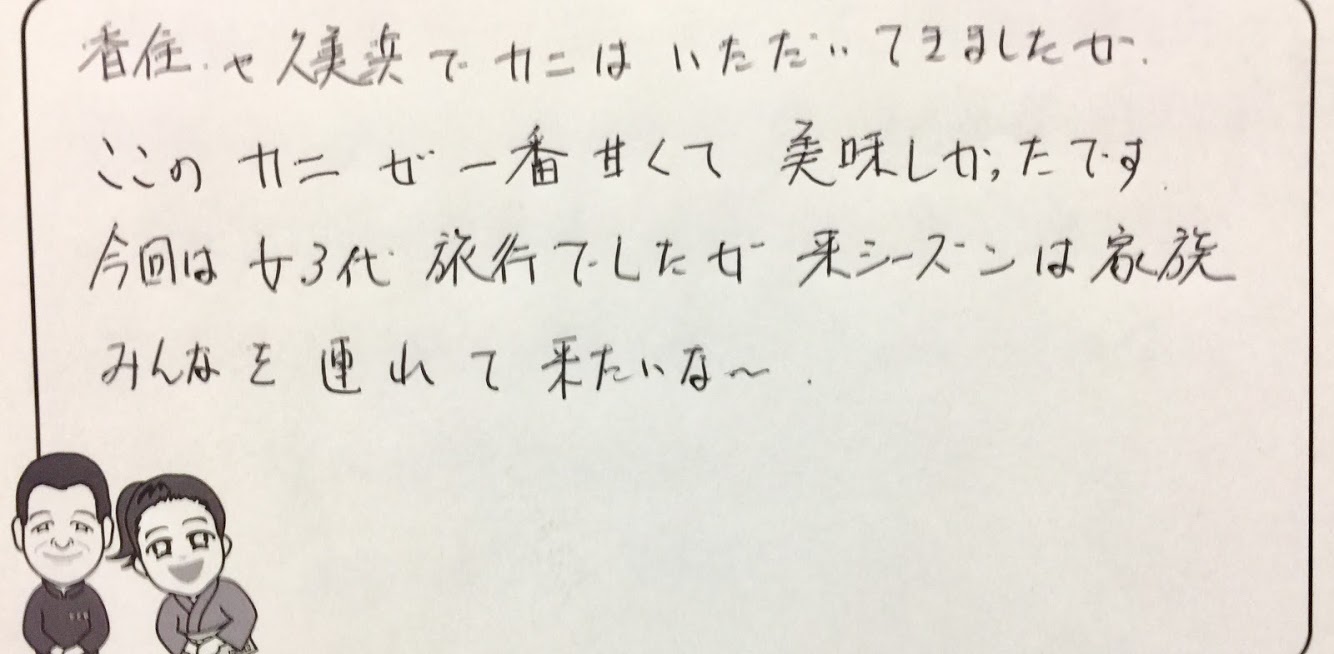 香住.や久美浜でカニはいただいてきましたが.
ここのカニが一番甘くて美味しかったです.
今回は女3代旅行でしたが来シーズンは家族
みんなを連れて来たいな〜.